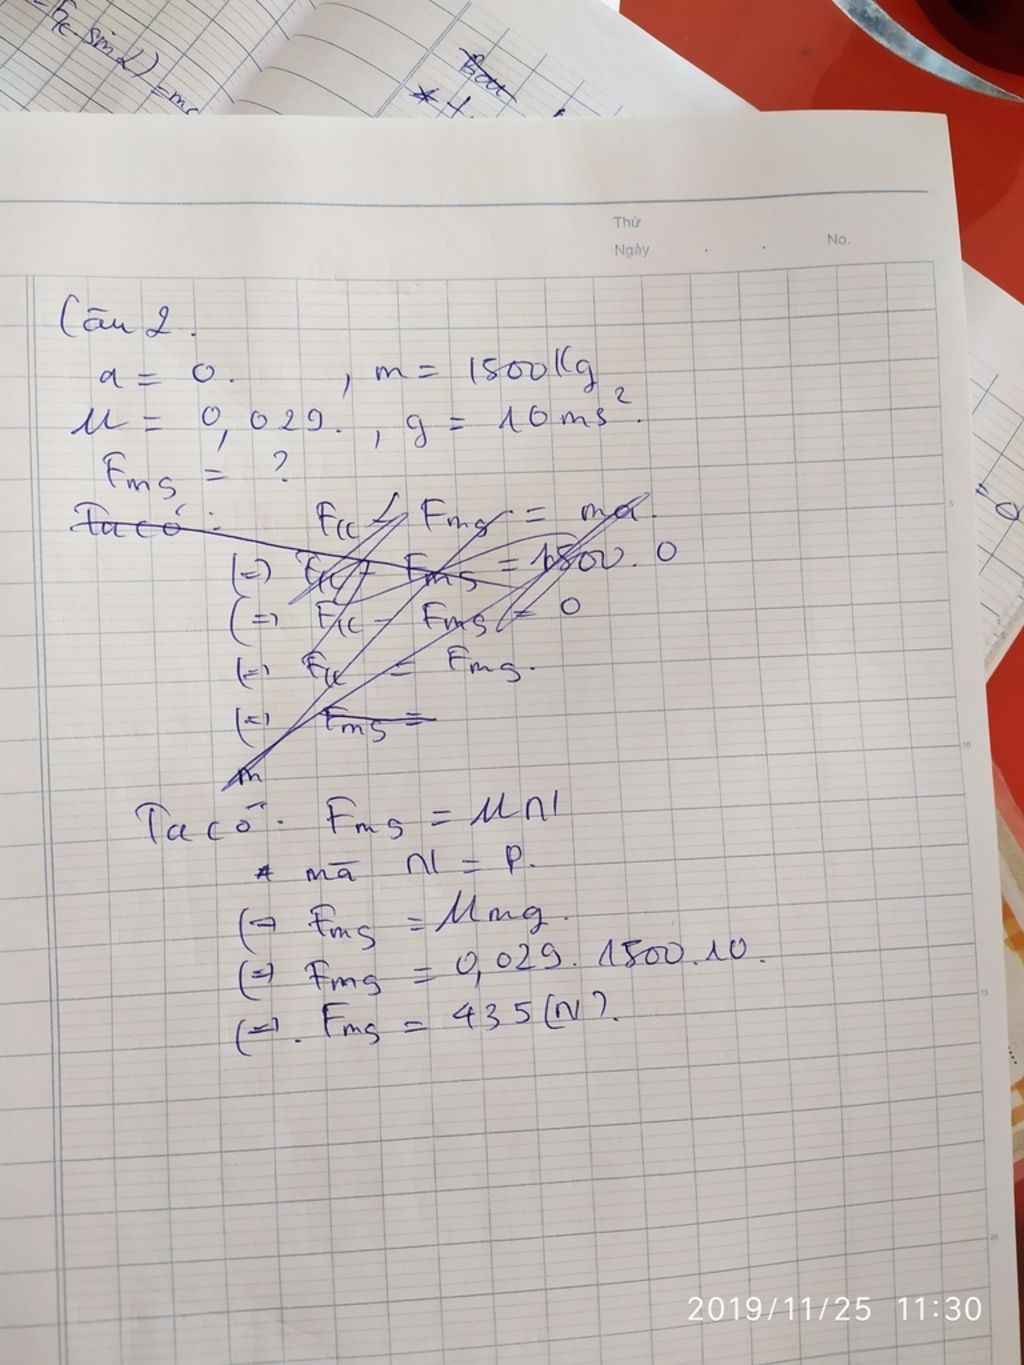 = Fk. sin α) = ma
*
Thứ
Ngày . .
No.
Câu 2.
a = 0. , m = 1500Kg
μ = 0,029. , g = 10ms².
Fms = ?
Ta có: Fk - Fms = ma.
(=) Fk - Fms = 1500. 0
(=) Fk - Fms = 0
(=) Fk = Fms.
(=) Fms =
m
Ta có. Fms = μN
* mā N = P.
(=) Fms = μmg.
(=) Fms = 0,029. 1500.10.
(=). Fms = 435(N).
5
10
15
20
= 0
2019/11/25 11:30